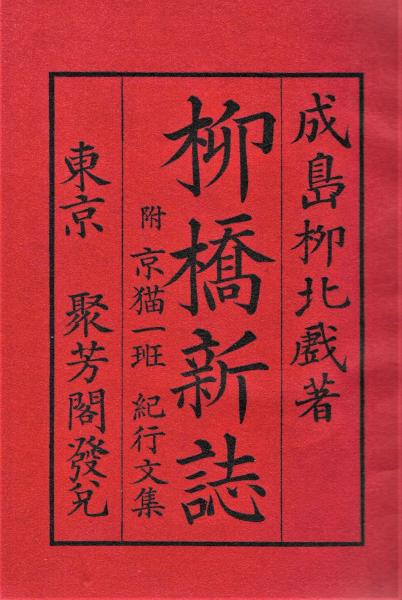 成島柳北戲著
柳橋新誌
附 京猫一班 紀行文集
東京 聚芳閣發兌